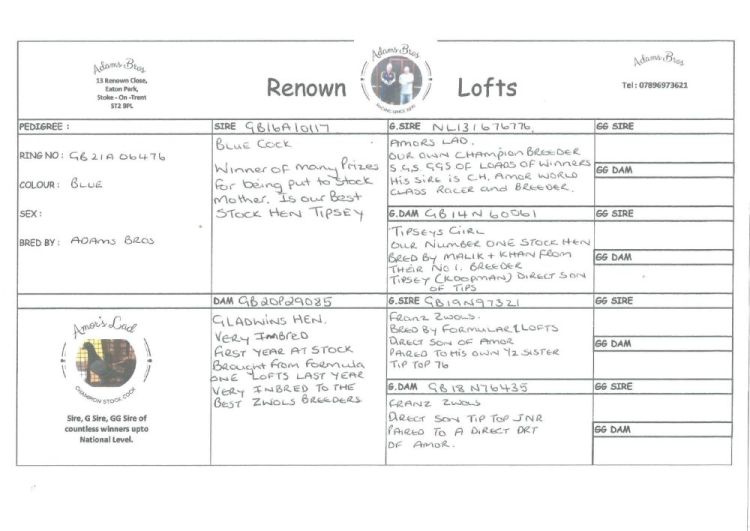 Adams Bros
13 Renown Close,
Eaton Park,
Stoke - On -Trent
ST2 9PL
Renown
Adams Bros
Lofts
Adams Bros
Tel : 07896973621
PEDIGREE :
RING NO: GB 21A 06476
COLOUR: BLUE
SEX:
BRED BY: ADAMS BROS
SIRE GB16A10117
BLUE COCK
Winner of many Prizes
for being put to stock
Mother. Is our Best
STOCK HEN TIPSEY
G.SIRE NL131676776.
AMORS LAD.
OUR OWN CHAMPION BREEDER
S.G.S. GGS OF LOADS OF WINNERS
HIS SIRE IS CH. AMOR WORLD
CLASS RACER and BREEDER.
GG SIRE
GG DAM
G.DAM GB 14 N 60061
TIPSEYS GIRL
OUR NUMBER ONE STOCK HEN
BRED BY MALIK + KHAN FROM
THEIR NO 1. BREEDER
TIPSEY (KOOPMAN) DIRECT SON
OF TIPS
GG SIRE
GG DAM
Amor's Lad
CHAMPION STOCK COCK
Sire, G Sire, GG Sire of
countless winners upto
National Level.
DAM GB20P29085
GLADWINS HEN.
VERY INBRED
FIRST YEAR AT STOCK
Brought from Formula
ONE LOFTS LAST YEAR
VERY INBRED TO THE
BEST ZWOLS BREEDERS
G.SIRE GB19N97321
FRANZ ZWOLS.
BRED BY FORMULAR 1 LOFTS
DIRECT SON OF AMOR
PAIRED TO HIS OWN 1/2 SISTER
TIP TOP 76
GG SIRE
GG DAM
G.DAM GB 18 N76435
FRANZ ZWOLS
DIRECT SON TIP TOP JNR
PAIRED TO A DIRECT DRT
OF AMOR.
GG SIRE
GG DAM